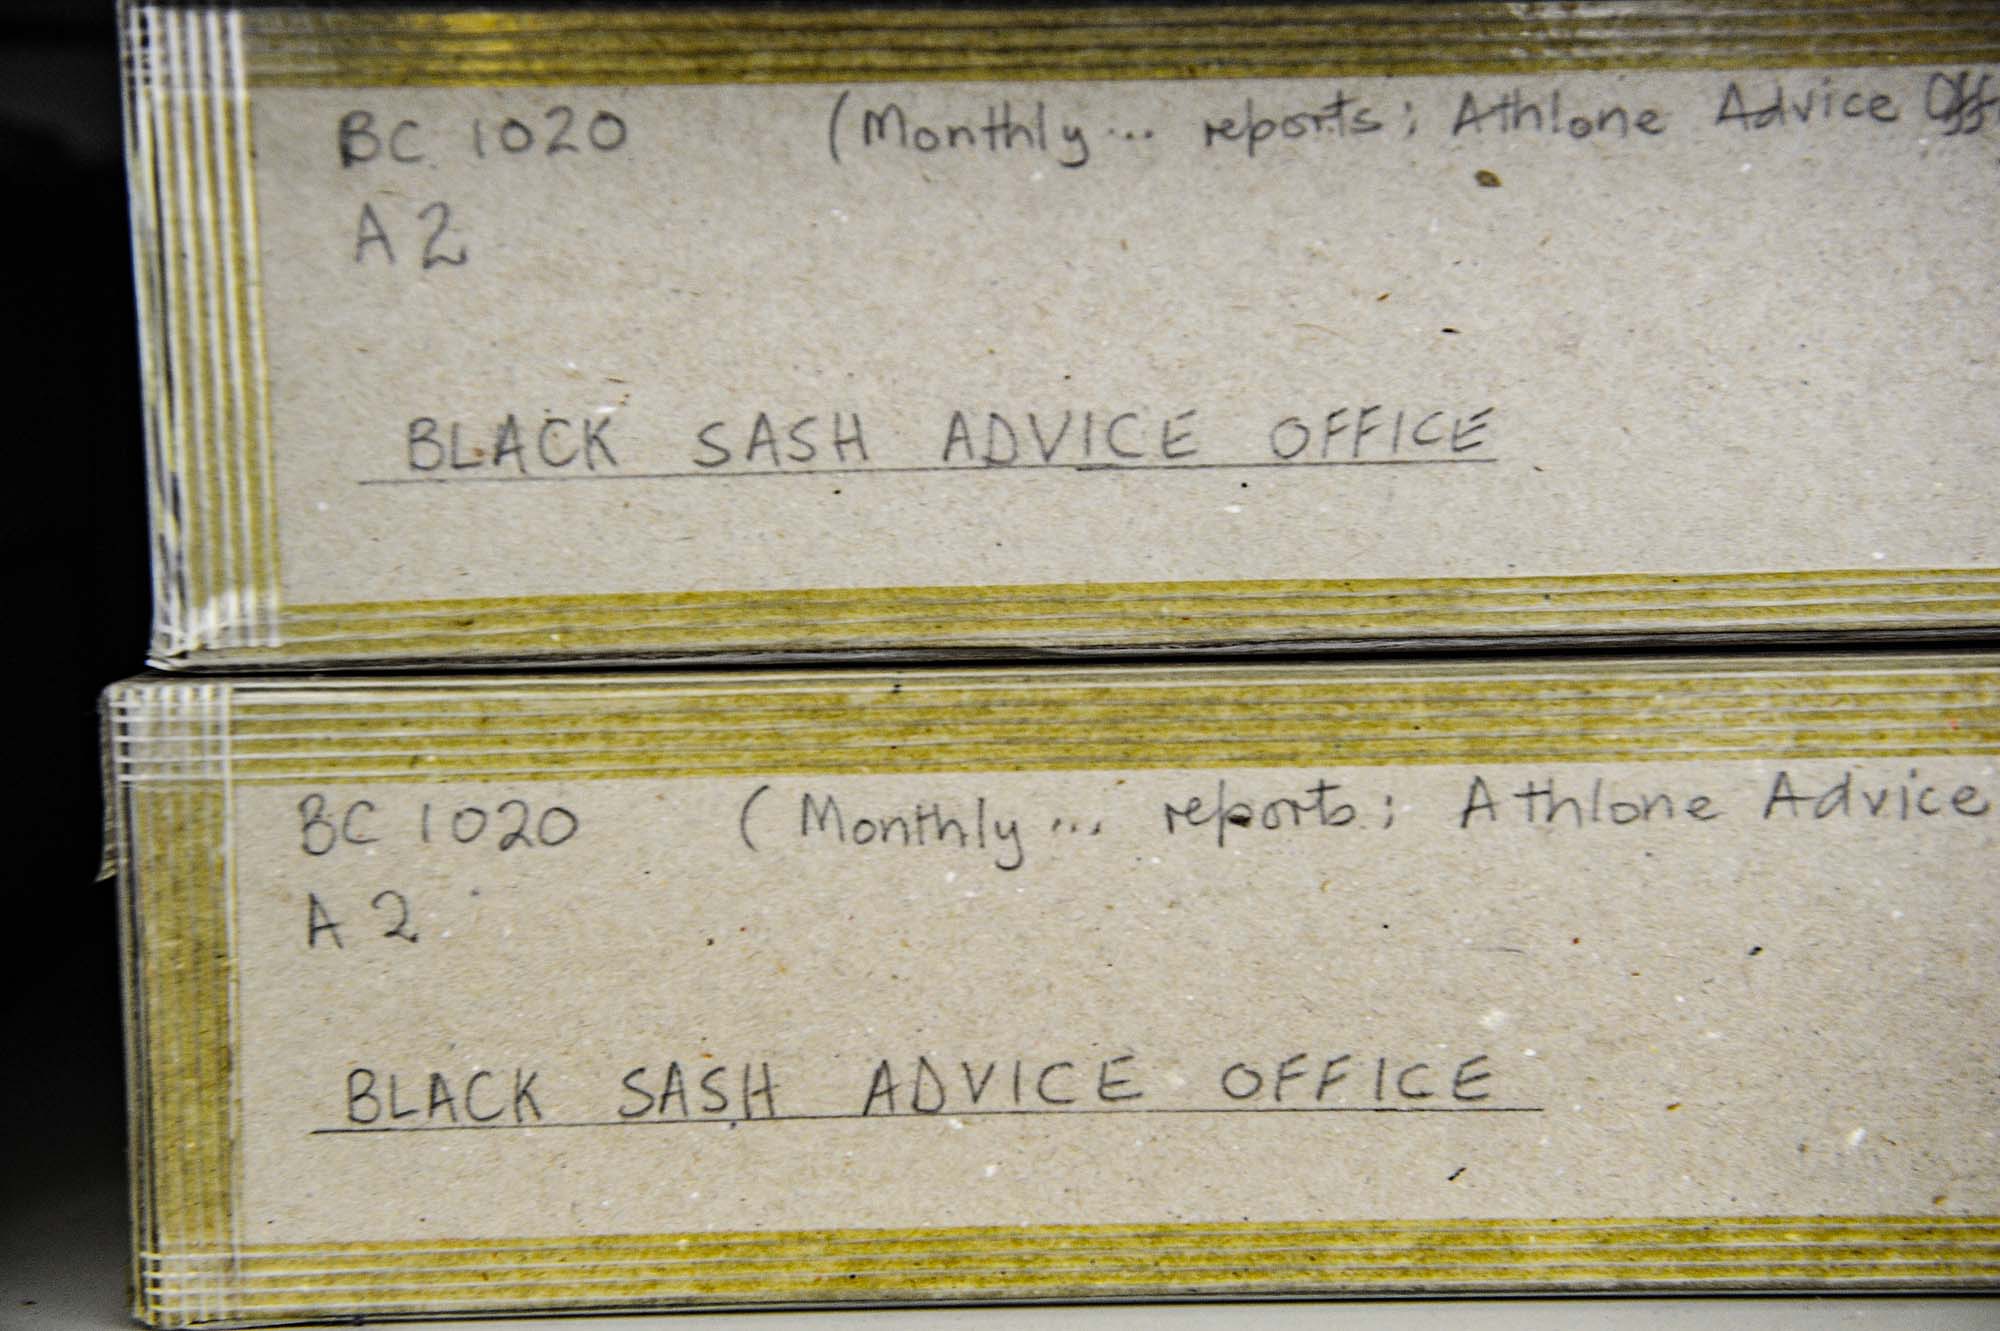 BC 1020 (Monthly... reports; Athlone Advice Off
A2
BLACK SASH ADVICE OFFICE
BC 1020 (Monthly... reports; Athlone Advice
A2
BLACK SASH ADVICE OFFICE